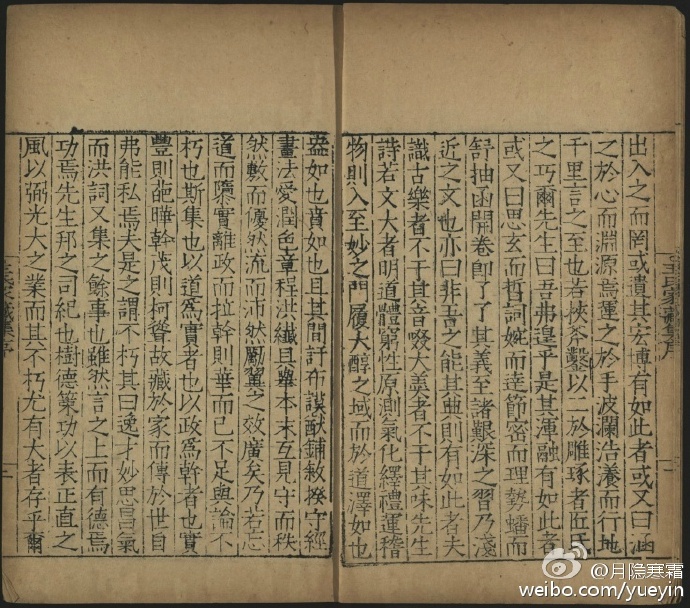 出入之而罔或遺其宏博有如此者或又曰涵
之於心而淵源焉運之於手波瀾浩瀁而行地
千里言之至也若挾斧鑿以二於雕琢者匠氏
之巧爾先生曰吾弗遑乎是其渾融有如此者
或又曰思玄而哲詞婉而達節密而理勢蟠而
舒抽函開卷即了了其義至諸艱深之習乃淺
近之文也亦曰非吾之能其典則有如此者夫
識古樂者不于其音啜大羹者不于其味先生
詩若文大者明道體窮性原測氣化繹禮運稽
物則入至妙之門履大醇之域而於道澤如也
盎如也賁如也且其間訏布謨猷鋪敘揆守經
畫法愛潤色章程洪纖具舉本末互見守而秩
然數而優然流而沛然勵翼之效廣矣乃若忘
道而隳實離政而拉幹則華而已不足與論不
朽也斯集也以道為實者也以政為幹者也實
豐則葩曄幹茂則柯聳故藏於家而傳於世自
弗能私焉夫是之謂不朽其曰逸才妙思昌氣
而洪詞又集之餘事也雖然言之上而有德焉
功焉先生邦之司紀也樹德築功以表正直之
風以弼光大之業而其不朽尤有大者存乎爾
王氏家藏集序
@月隐寒霜
weibo.com/yueyin